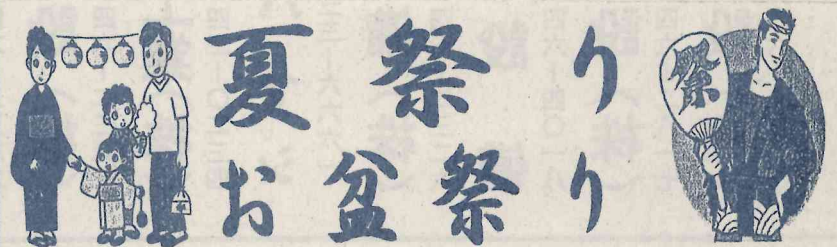 夏祭り
お盆祭り
祭